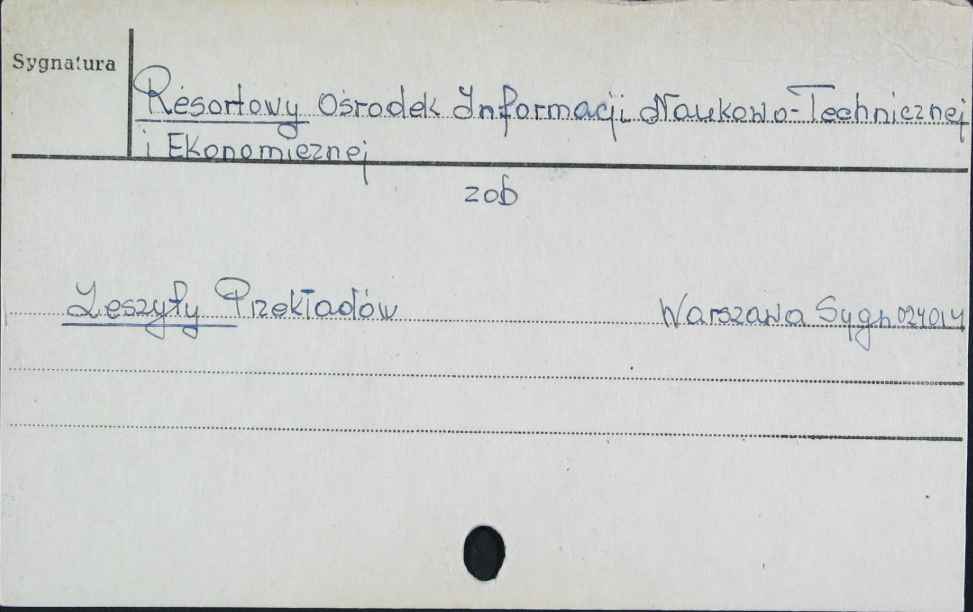 Sygnatura
Resortowy Ośrodek Informacji Naukowo-Technicznej
i Ekonomicznej
zob
Zeszyty Przekładów Warszawa Sygn 024014